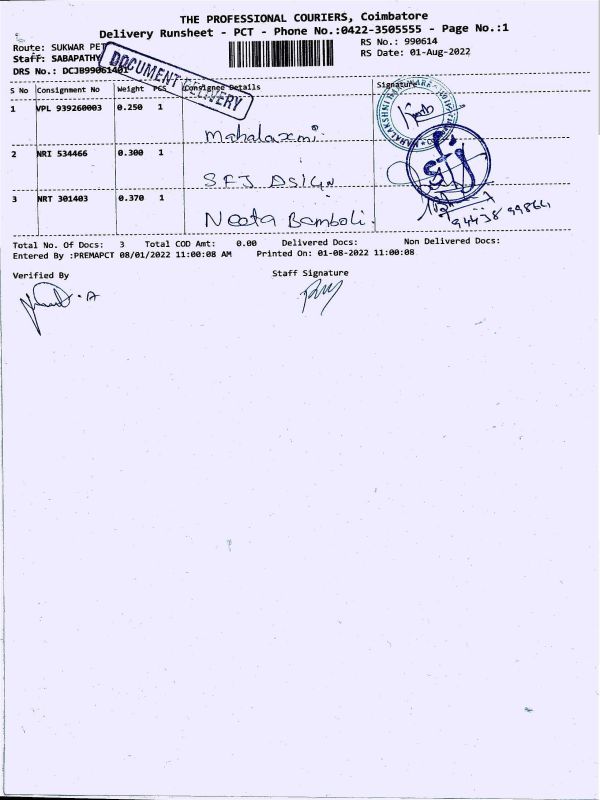 THE PROFESSIONAL COURIERS, Coimbatore
Delivery Runsheet - PCT - Phone No.:0422-3505555 - Page No.:1
Route: SUKWAR PET
RS No.: 990614
Staff: SABAPATHY
RS Date: 01-Aug-2022
DRS No.: DCJB99061401
DOCUMENT DELIVERY
S No Consignment No Weight PCS Consignee Details Signature
1 VPL 939260003 0.250 1
Mahalaxmi
2 NRI 534466 0.300 1
SFJ DSIGN
sfj
3 NRT 301403 0.370 1
Neeta Bamboli.
Total No. Of Docs: 3 Total COD Amt: 0.00 Delivered Docs: Non Delivered Docs:
Entered By :PREMAPCT 08/01/2022 11:00:08 AM Printed On: 01-08-2022 11:00:08
Verified By Staff Signature